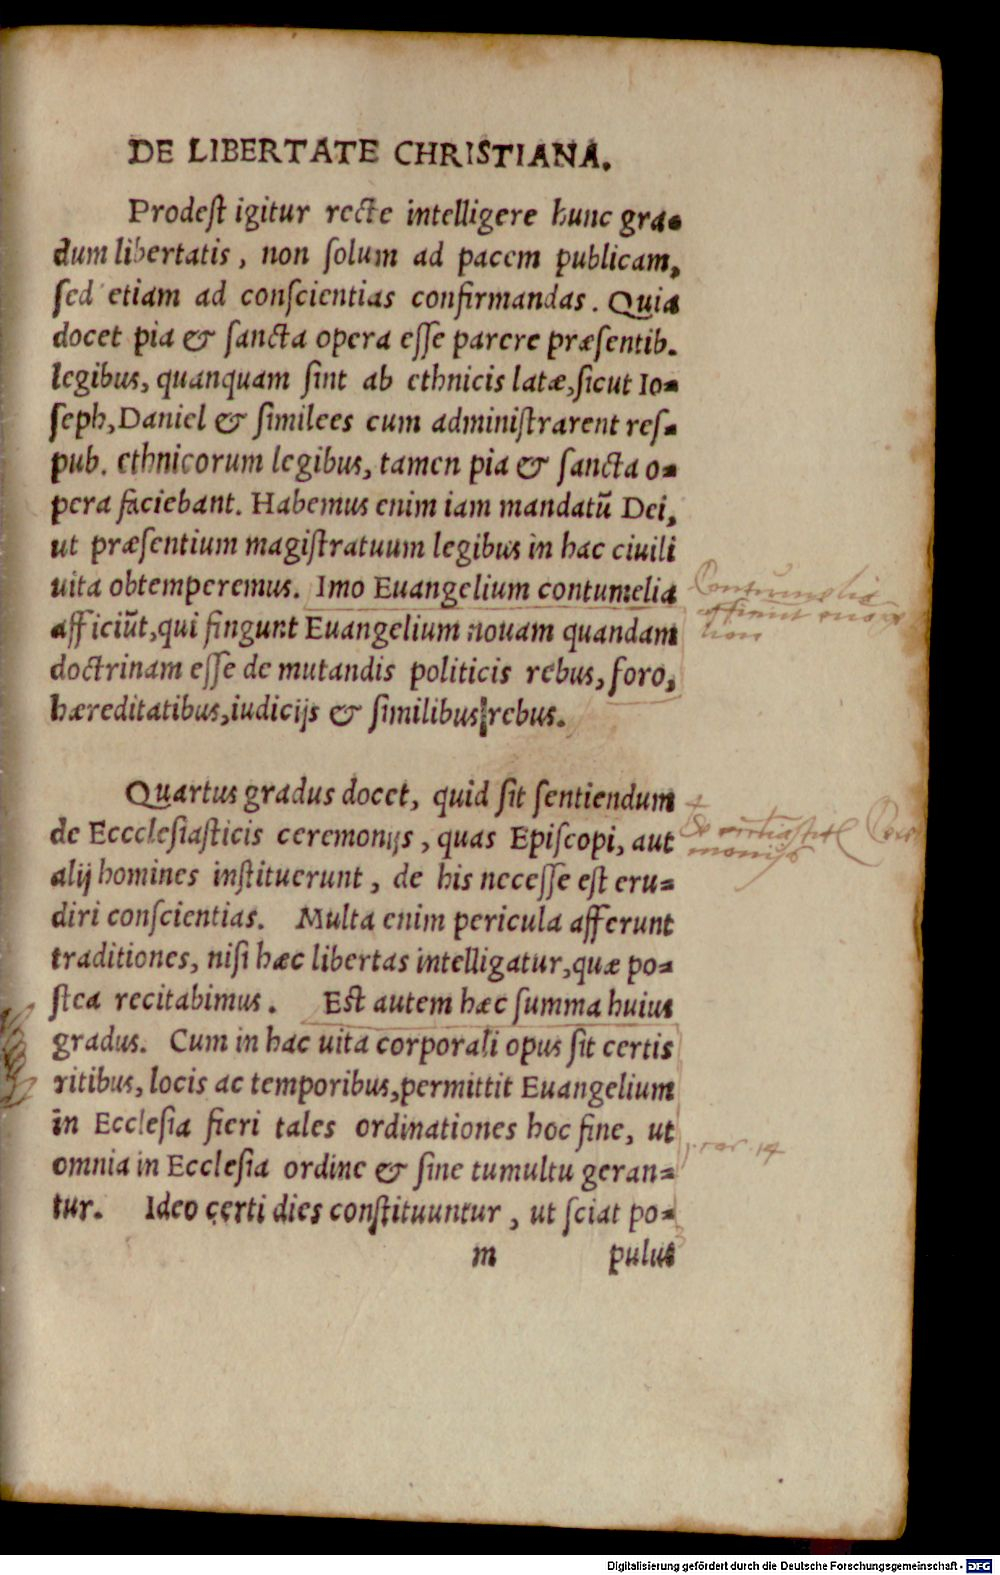 DE LIBERTATE CHRISTIANA.
Prodeſt igitur recte intelligere hunc gra-
dum libertatis, non ſolum ad pacem publicam,
ſed etiam ad conſcientias confirmandas. Quia
docet pia & ſancta opera eſſe parere præſentib.
legibus, quanquam ſint ab ethnicis latæ, ſicut Io-
ſeph, Daniel & ſimilees cum adminiſtrarent reſ-
pub. ethnicorum legibus, tamen pia & ſancta o-
pera faciebant. Habemus enim iam mandatū Dei,
ut præſentium magiſtratuum legibus in hac ciuili
uita obtemperemus. Imo Euangelium contumelia
afficiūt, qui fingunt Euangelium nouam quandam
doctrinam eſſe de mutandis politicis rebus, foro,
hæreditatibus, iudicijs & ſimilibus rebus.
Contumelia
afficiunt
Quartus gradus docet, quid ſit ſentiendum
de Ecccleſiaſticis ceremonijs, quas Epiſcopi, aut
alij homines inſtituerunt, de his neceſſe eſt eru-
diri conſcientias. Multa enim pericula afferunt
traditiones, niſi hæc libertas intelligatur, quæ po-
ſtea recitabimus. Eſt autem hæc ſumma huius
gradus. Cum in hac uita corporali opus ſit certis
ritibus, locis ac temporibus, permittit Euangelium
in Eccleſia fieri tales ordinationes hoc fine, ut
omnia in Eccleſia ordine & ſine tumultu geran-
tur. Ideo certi dies conſtituuntur, ut ſciat po-
m pulus
14
Digitalisierung gefördert durch die Deutsche Forschungsgemeinschaft - DFG